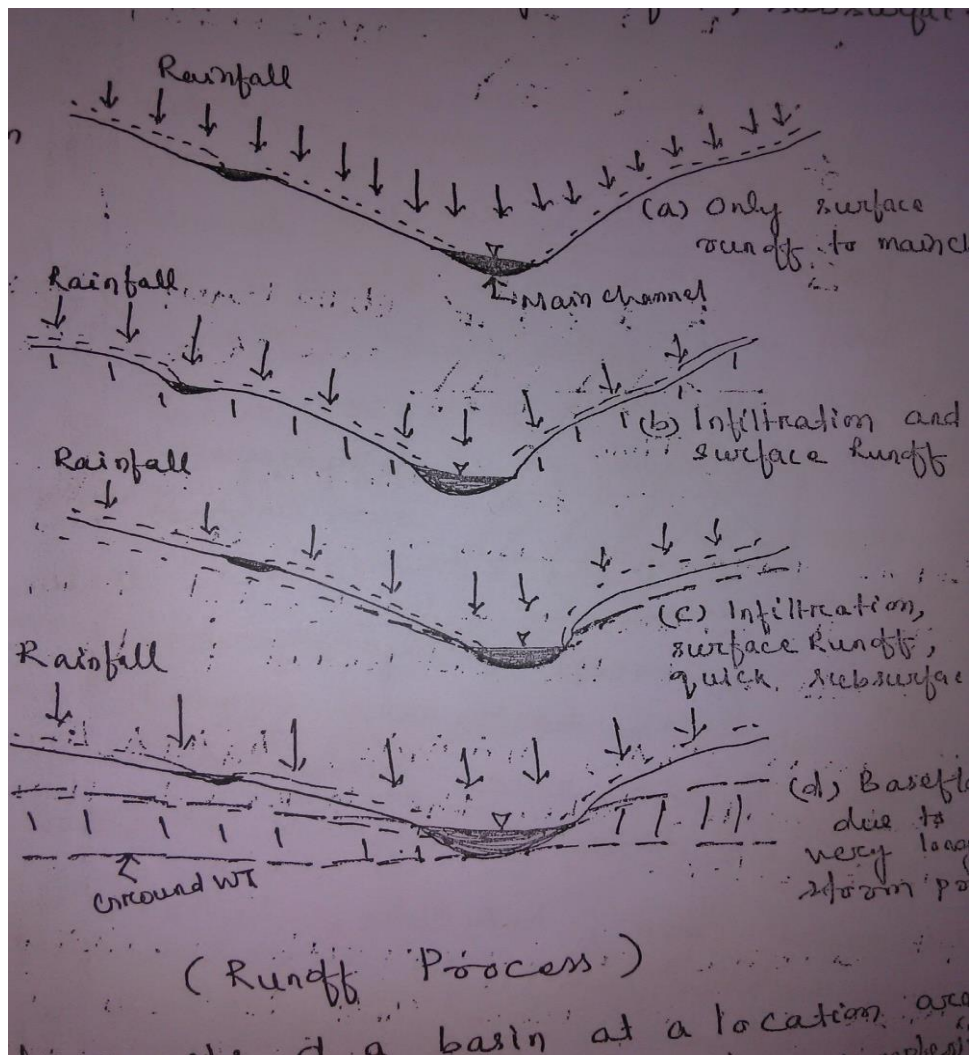 Rainfall
(a) Only surface
runoff to main
Main channel
Rainfall
(b) Infiltration and
surface Runoff
Rainfall
(c) Infiltration,
surface Runoff,
quick subsurface
Rainfall
(d) Basefl
due to
very long
storm
Ground WT
(Runoff Process)
a basin at a location